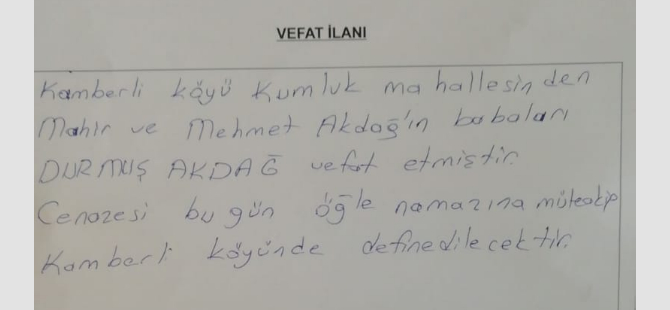 VEFAT İLANI
Kamberli köyü Kumluk mahallesinden
Mahir ve Mehmet Akdağ'ın babaları
DURMUŞ AKDAĞ vefat etmiştir.
Cenazesi bugün öğle namazına müteakip
Kamberli köyünde definedilecektir.